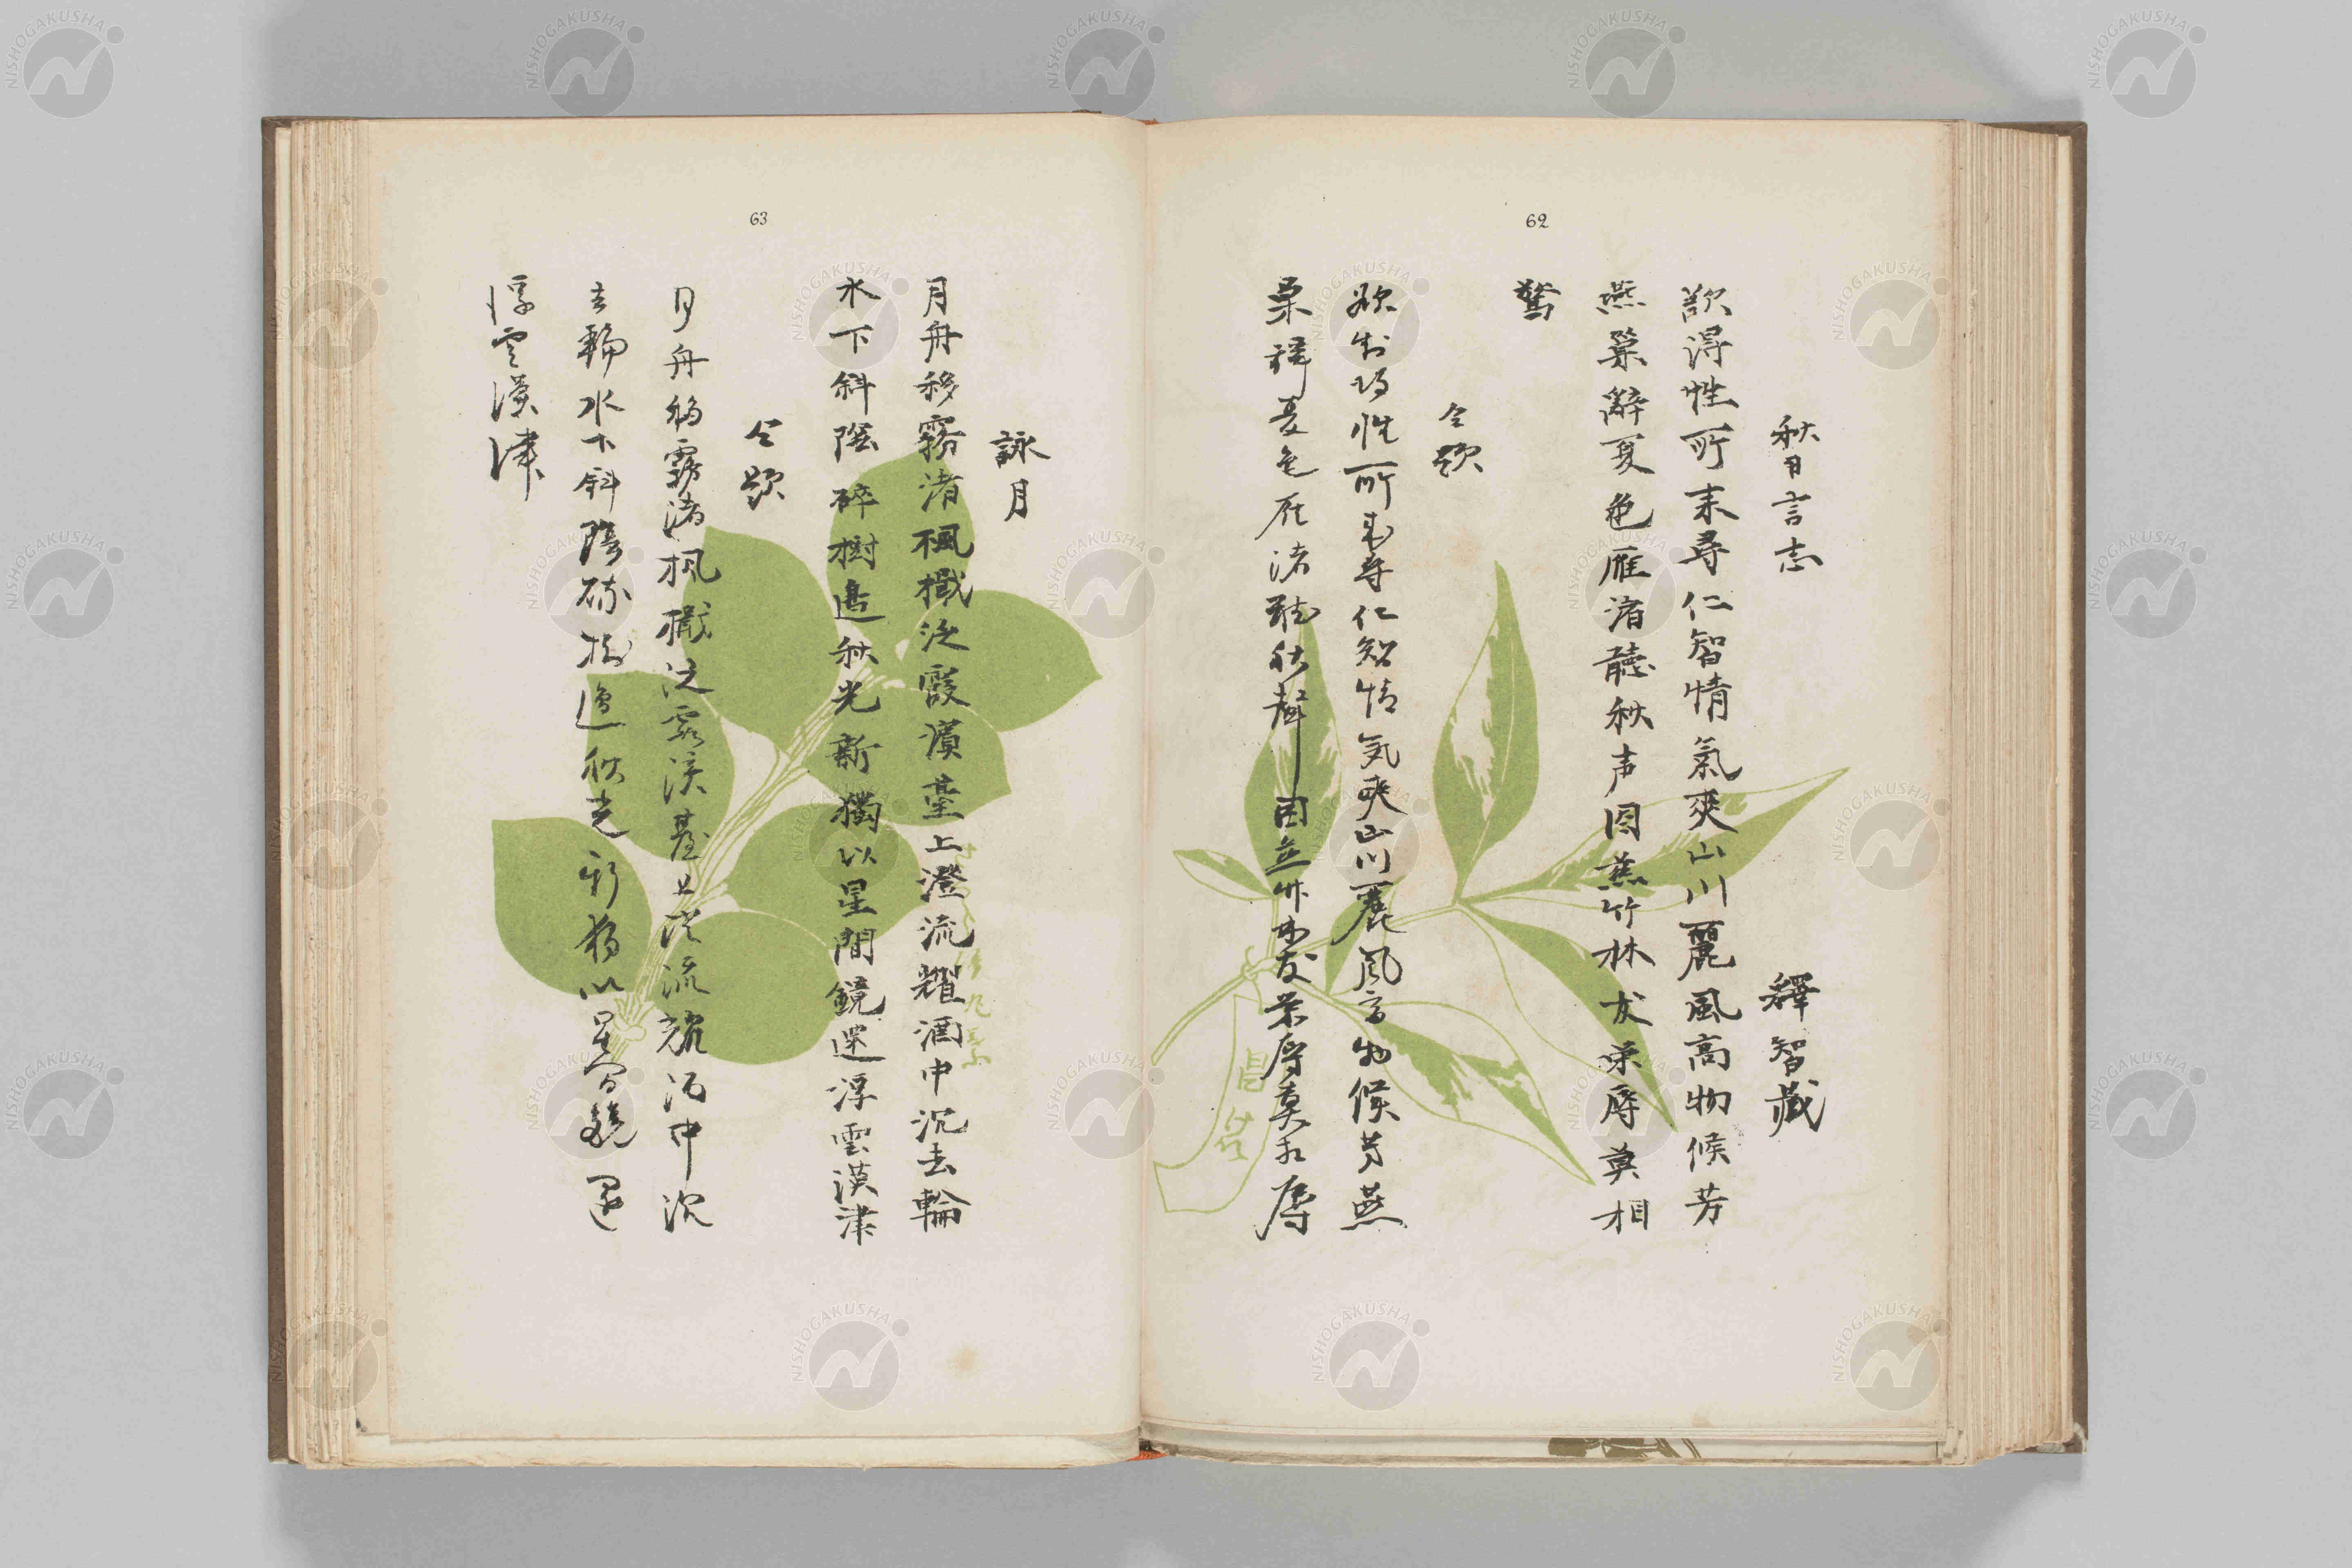 62
秋日言志
釋智藏
欲得性所来尋仁智情氣爽山川麗風高物候芳
燕巢辭夏色雁渚聽秋声因茲竹林友栄辱莫相
驚
仝題
欲制得性所来尋仁智情気爽山川麗風高物候芳燕
巣辞夏色雁渚聴秋聲因茲竹林友栄辱莫相辱
63
詠月
月舟移霧渚楓檝泛霞濱臺上澄流耀酒中沉去輪
水下斜陰碎樹邊秋光新獨以星間鏡還浮雲漢津
仝題
月舟移霧渚楓檝泛霞浜臺上澄流耀酒中沉
去輪水下斜陰砕樹邊秋光新獨以星間鏡還
浮雲漢津
NISHOGAKUSHA